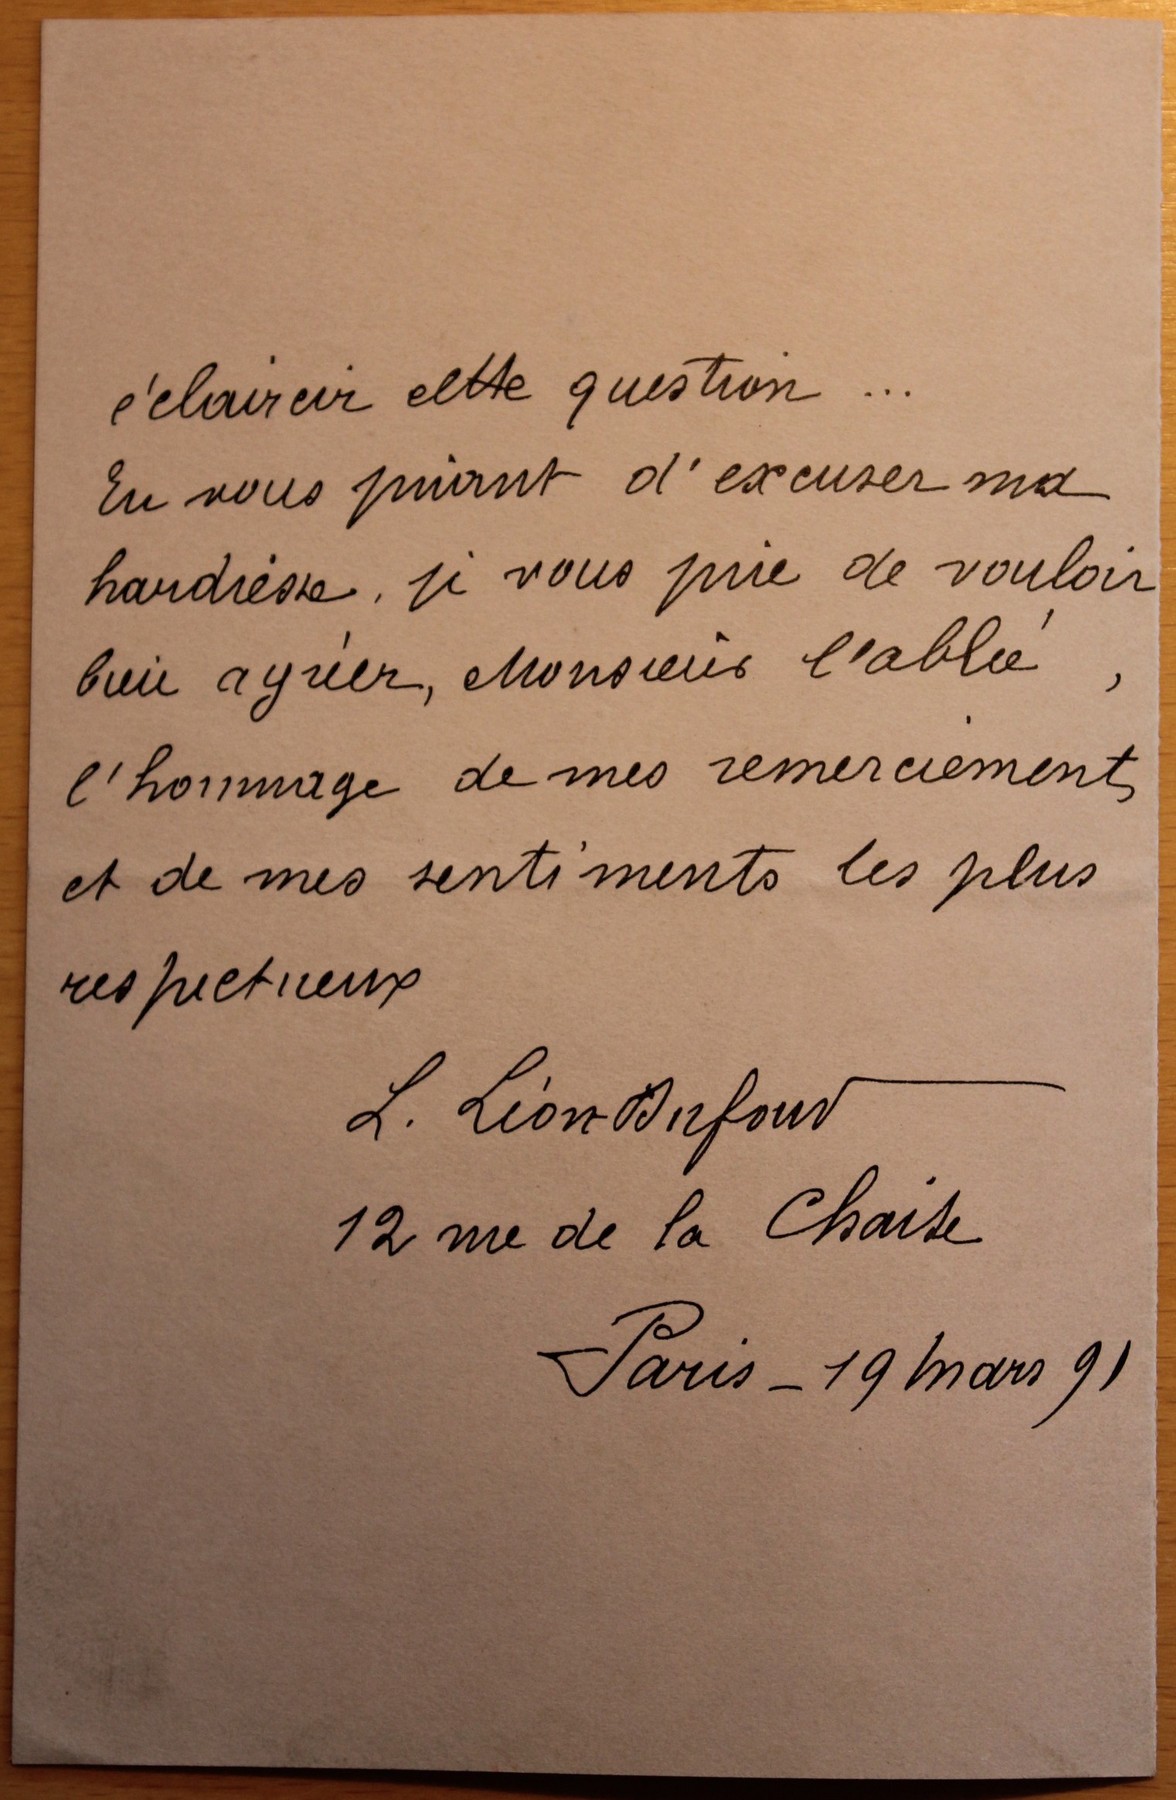 éclaircir cette question ...
En vous priant d'excuser ma
hardiesse, je vous prie de vouloir
bien agréer, Monsieur l'abbé,
l'hommage de mes remerciements
et de mes sentiments les plus
respectueux
L. Léon Dufour
12 rue de la Chaise
Paris - 19 mars 91